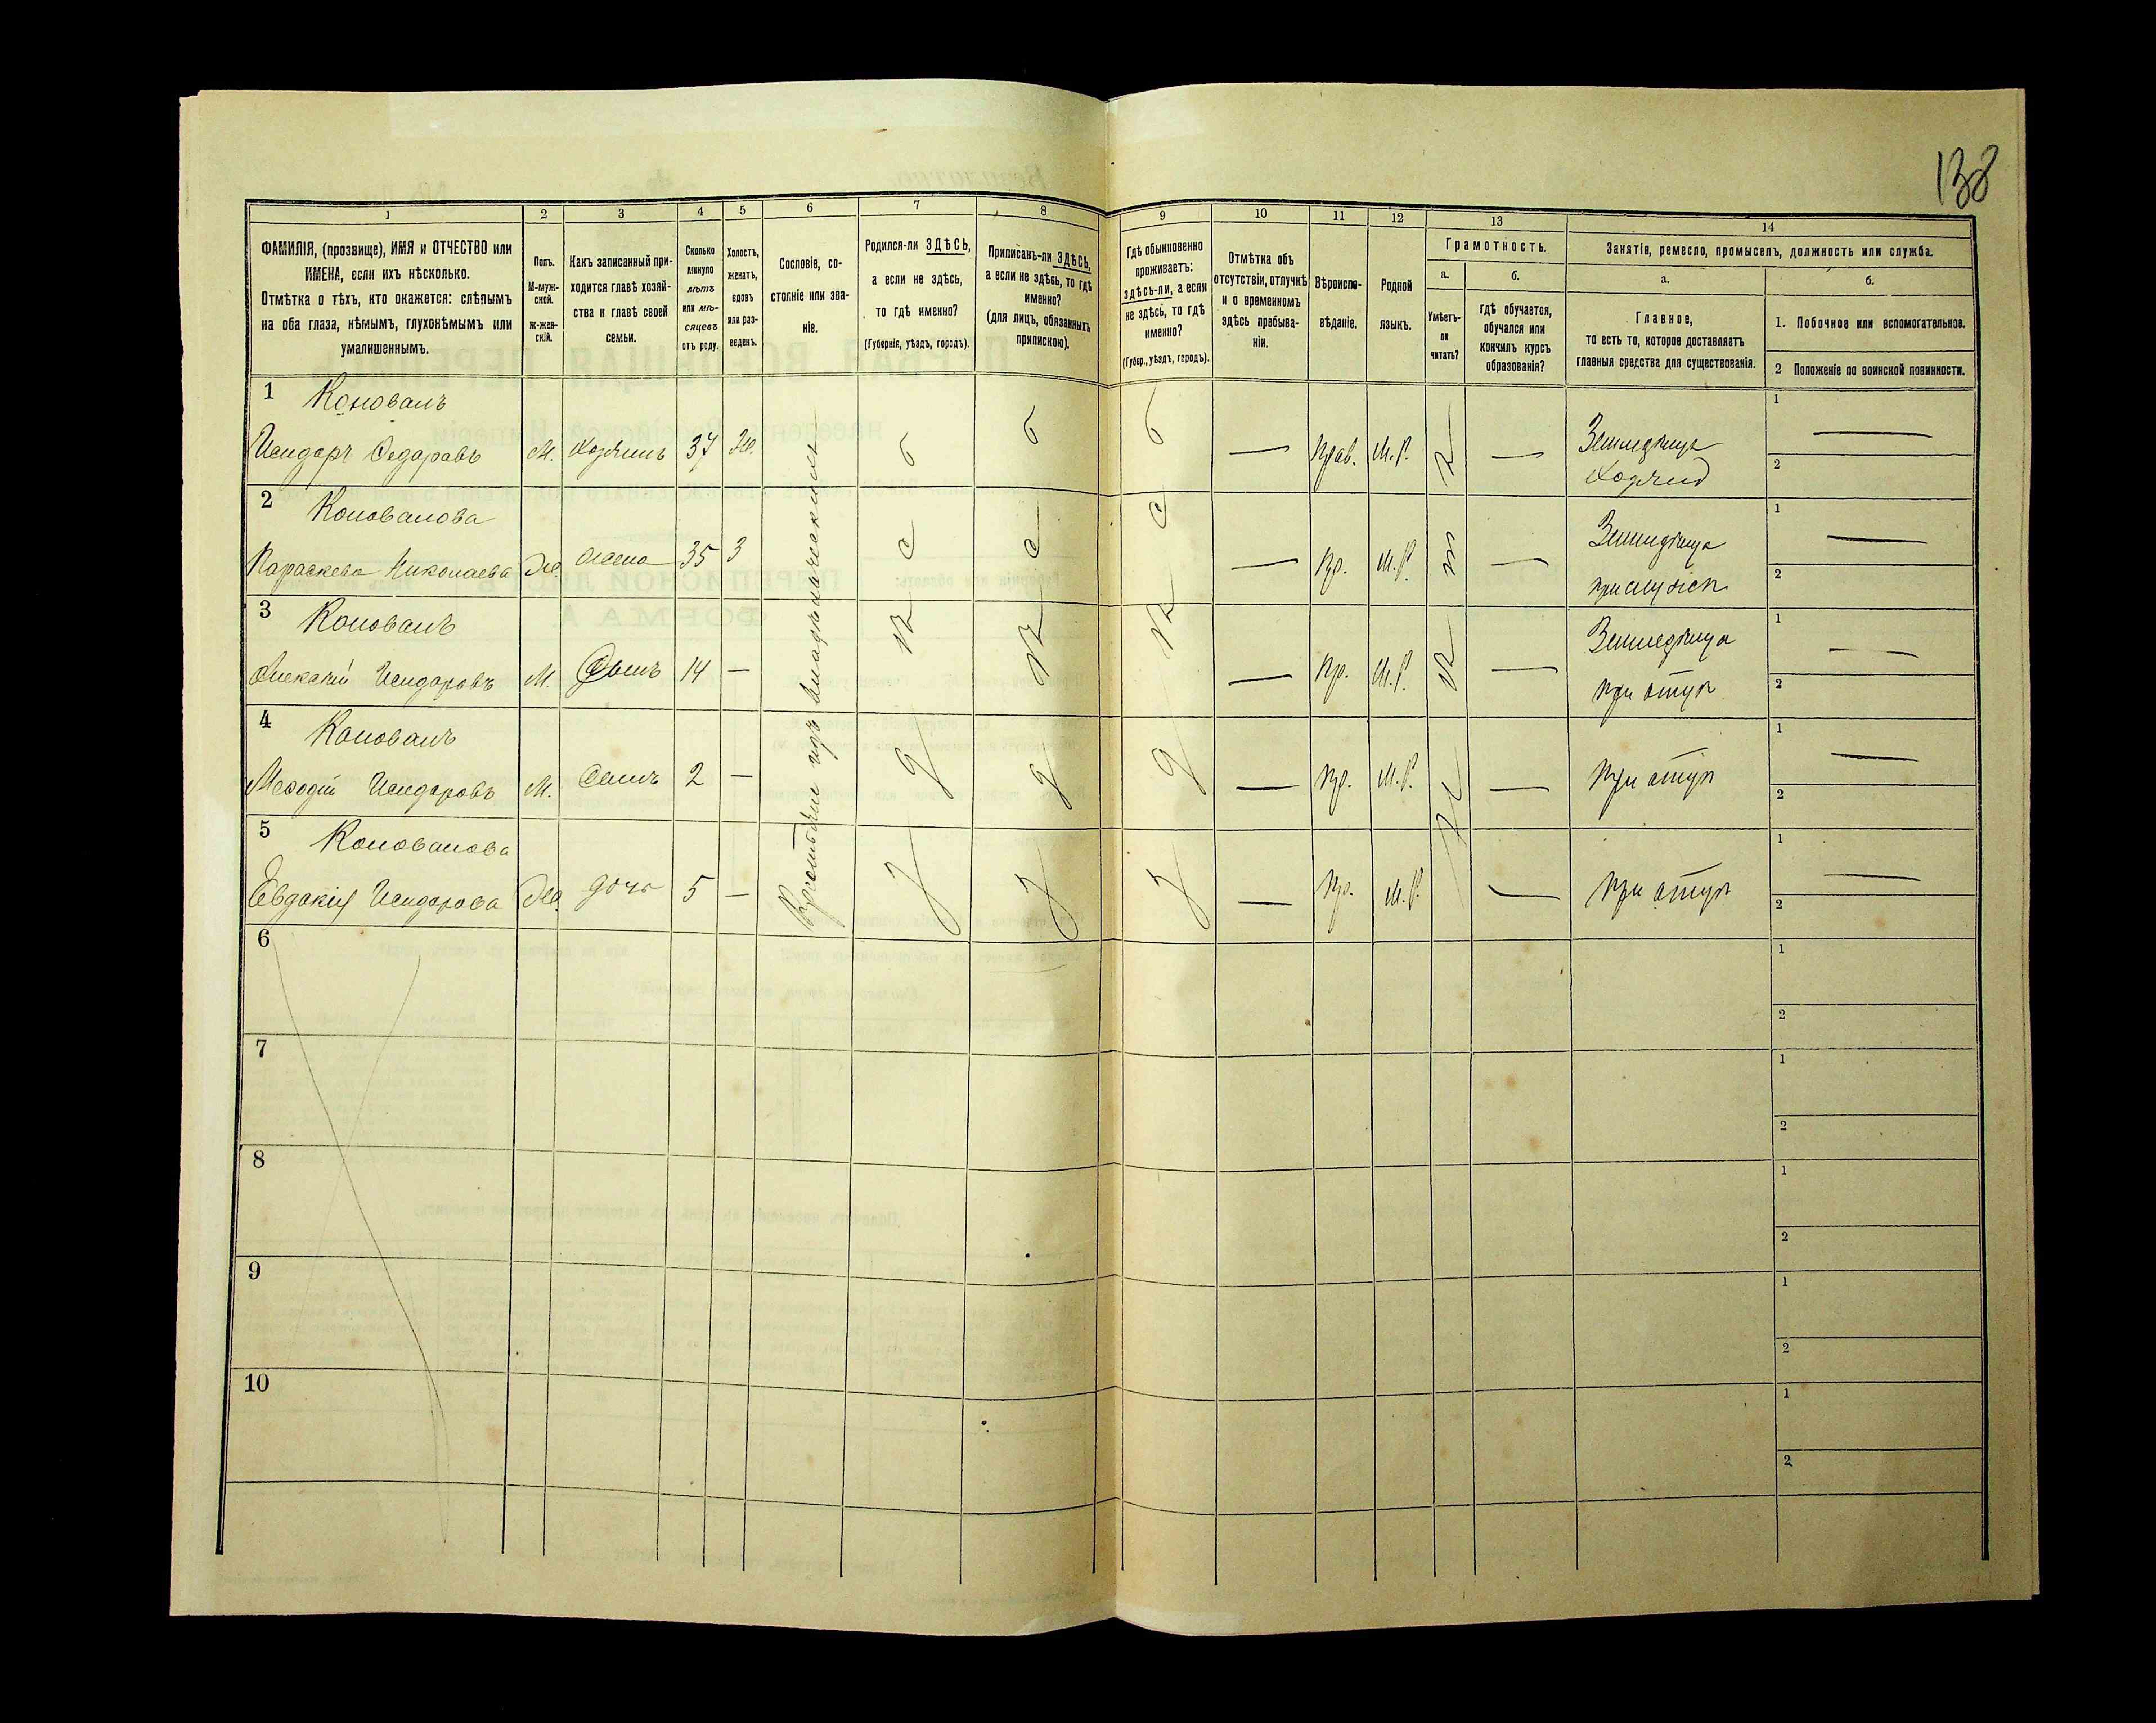 138
1 2 3 4 5 6 7 8 9 10 11 12 13 14
ФАМИЛІЯ, (прозвище), ИМЯ и ОТЧЕСТВО или
ИМЕНА, если ихъ нѣсколько.
Отмѣтка о тѣхъ, кто окажется: слѣпымъ
на оба глаза, нѣмымъ, глухонѣмымъ или
умалишеннымъ.
Полъ.
М-муж-
ской.
Ж-жен-
скій.
Какъ записанный при-
ходится главѣ хозяй-
ства и главѣ своей
семьи.
Сколько
минуло
лѣтъ
или мѣ-
сяцевъ
отъ роду.
Холостъ,
женатъ,
вдовъ
или раз-
веденъ.
Сословіе, со-
стояніе или зва-
ніе.
Родился-ли ЗДѢСЬ,
а если не здѣсь,
то гдѣ именно?
(Губернія, уѣздъ, городъ).
Приписанъ-ли ЗДѢСЬ,
а если не здѣсь, то гдѣ
именно?
(для лицъ, обязанныхъ
припискою).
Гдѣ обыкновенно
проживаетъ:
здѣсь-ли, а если
не здѣсь, то гдѣ
именно?
(Губер., уѣздъ, городъ).
Отмѣтка объ
отсутствіи, отлучкѣ
и о временномъ
здѣсь пребыва-
ніи.
Вѣроиспо-
вѣданіе.
Родной
языкъ.
Грамотность.
а.
Умѣетъ-
ли
читать?
б.
гдѣ обучается,
обучался или
кончилъ курсъ
образованія?
Занятія, ремесло, промыселъ, должность или служба.
а.
Главное,
то есть то, которое доставляетъ
главныя средства для существованія.
б.
1. Побочное или вспомогательное.
2 Положеніе по воинской повинности.
1 Коновалъ
Исидоръ Федоровъ М. Хозяинъ 37 Ж. здѣсь здѣсь здѣсь — Прав. М.Р. — Земледѣлецъ
Хозяинъ
1 —
2
Крестьянинъ изъ владѣльческихъ
2 Коновалова
Параскева Николаева Ж. жена 35 З — Пр. М.Р. нѣтъ — Земледѣлица
1 —
2
3 Коновалъ
Алексѣй Исидоровъ М. Сынъ 14 — — Пр. М.Р. — Земледѣлица
при отцѣ
1 —
2
4 Коновалъ
Меѳодій Исидоровъ М. Сынъ 2 — — Пр. М.Р. — При отцѣ
1 —
2
5 Коновалова
Евдокія Исидорова Ж. дочь 5 — — Пр. М.Р. — При отцѣ
1 —
2
6 1
2
7 1
2
8 1
2
9 1
2
10 1
2